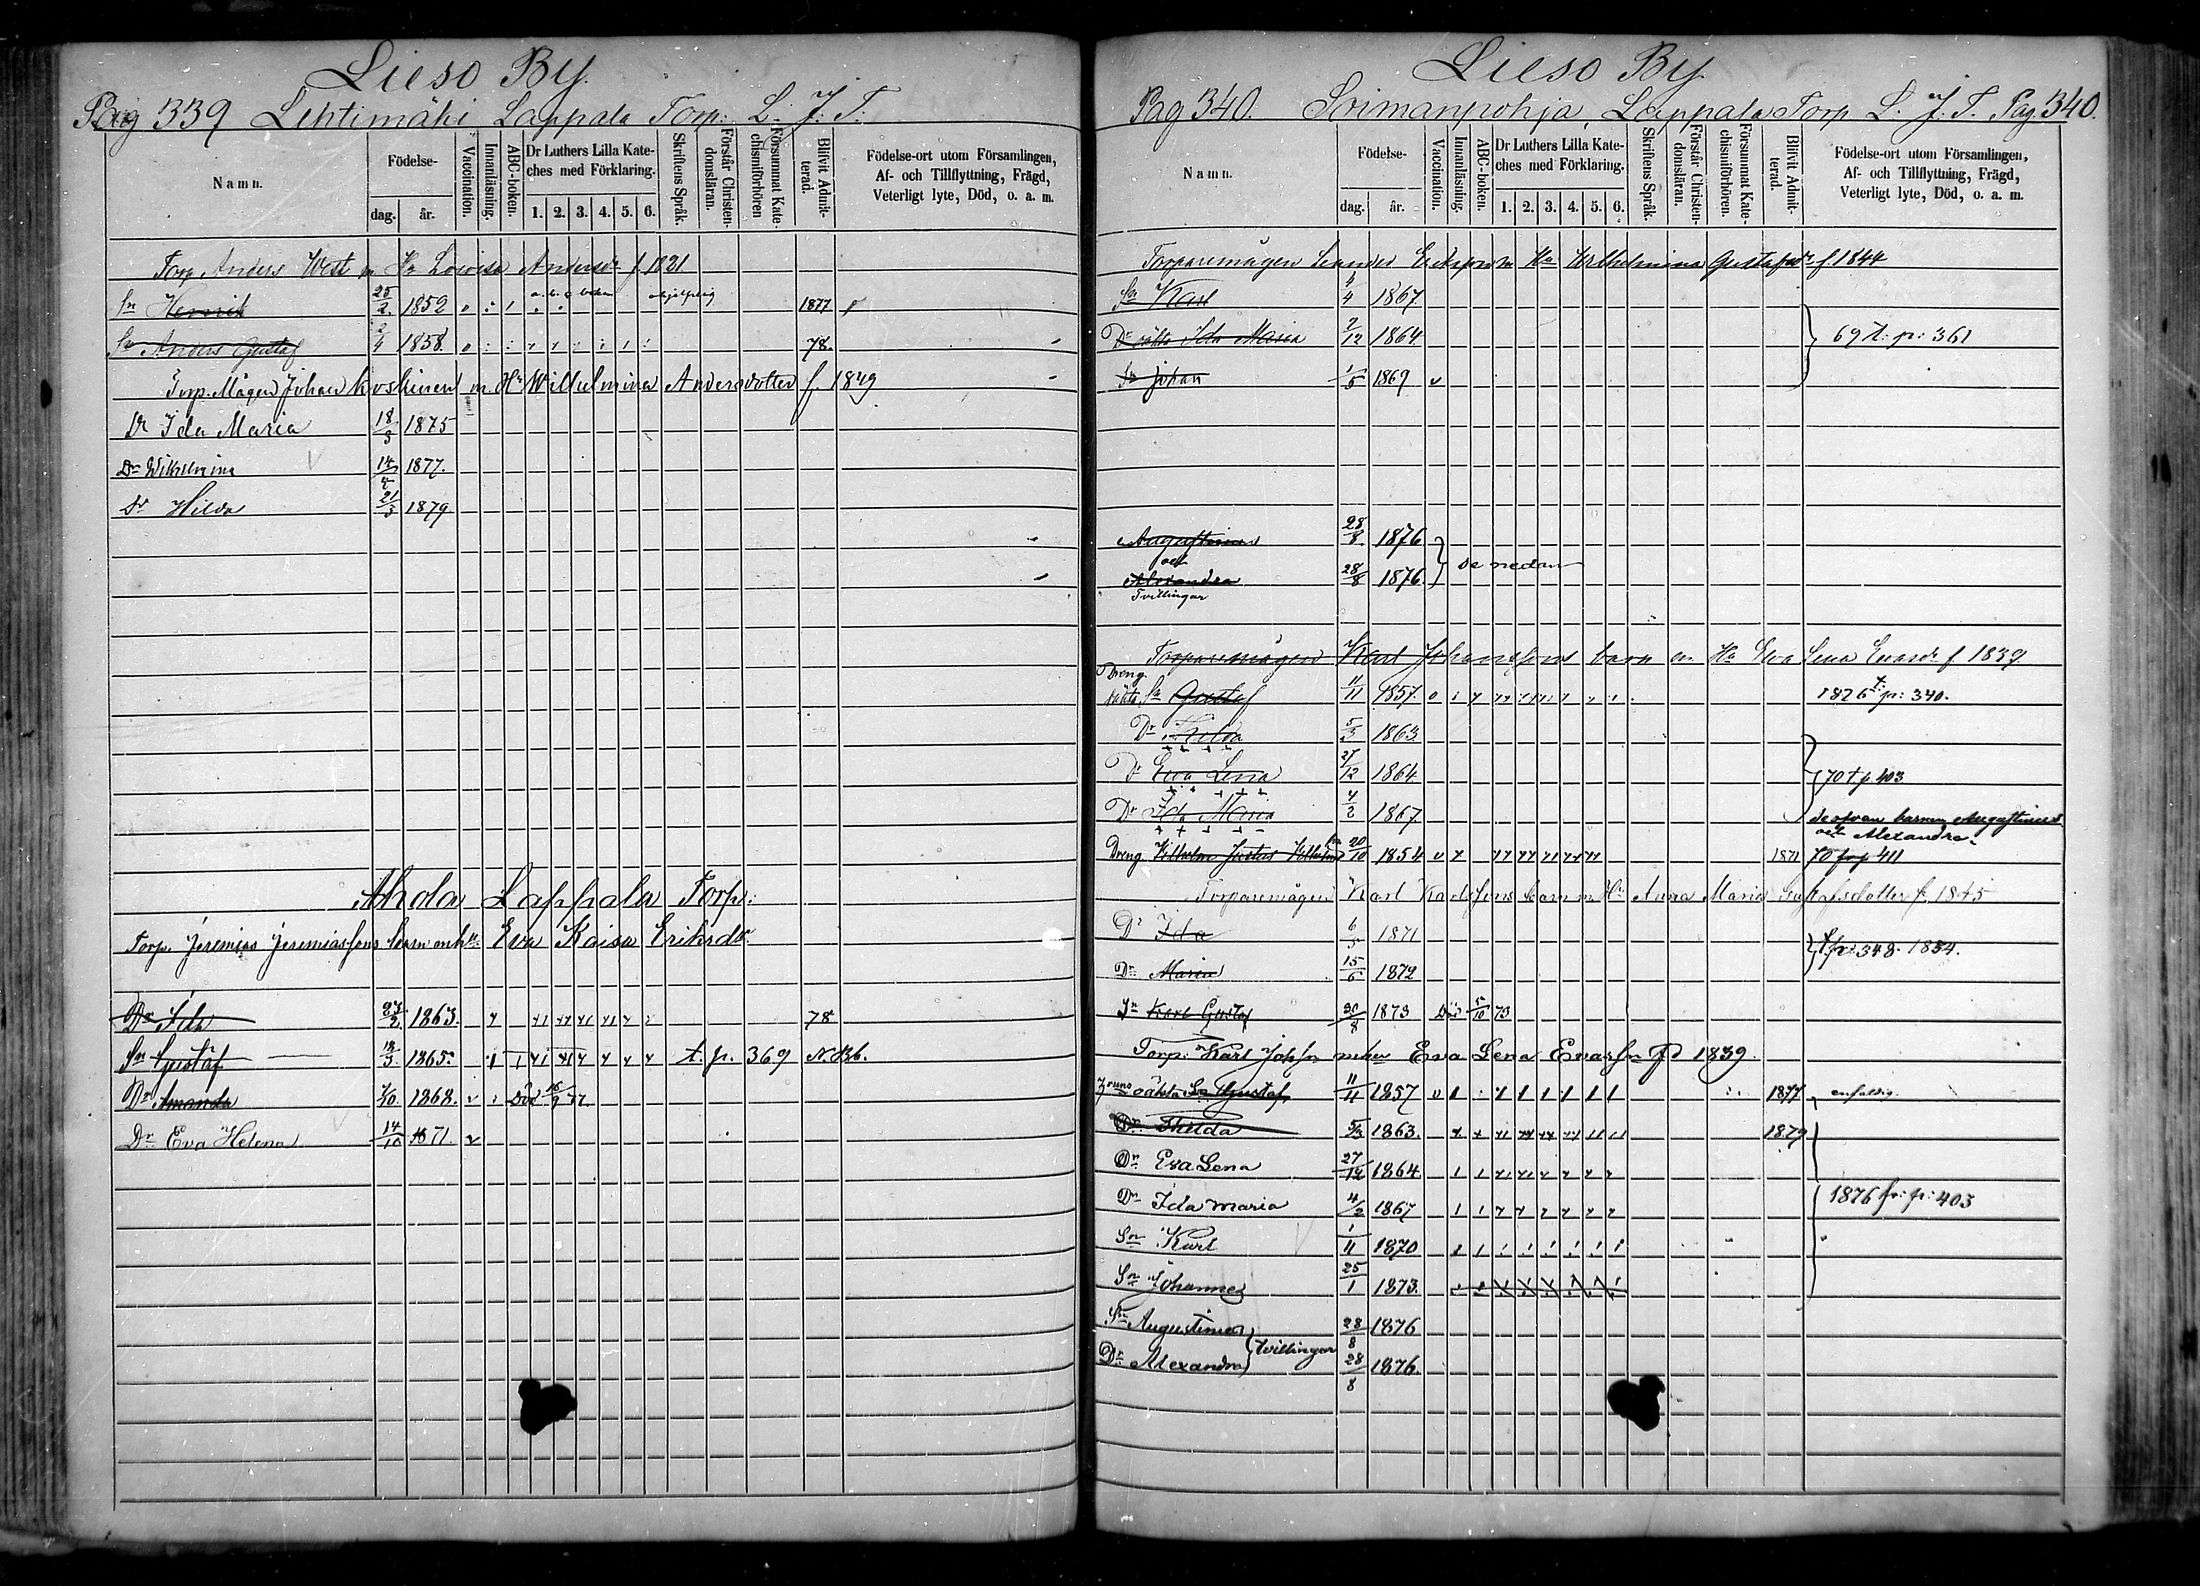 Lieso By.
Pag 339 Lehtimäki Lappala Torp: L. J: T:
Namn. Födelse- dag. år. Vaccination. Innanläsning. ABC-boken. Dr Luthers Lilla Kateches med Förklaring. 1. 2. 3. 4. 5. 6. Skriftens Språk. Förstår Christendomsläran. Försummat Katechismiförhören Blifvit Admitterad. Födelse-ort utom Församlingen, Af- och Tillflyttning, Frägd, Veterligt lyte, Död, o. a. m.
Torp Anders West m Hu Lovisa Andersdr f 1821
Sn Henrik 25/2 1852 1877
Sn Anders Gustaf 2/4 1858. 78.
Torp. Mågen Johan Koskinen m Hu Wilhelmina Andersdotter f. 1849
Dr Ida Maria 18/3 1875
Dr Wilhelmina 14/5 1877.
Dr Hilda 21/3 1879
Ahola Lappala Torp:
Torp. Jeremias Jeremiasson barn enk: Eva Kaisa Eriksdr
Dr Ida 27/2 1863. 78
Sn Gustaf 13/3 1865. t. p. 369 N.Bb.
Dr Amanda 7/10 1868. Död 16/9 77.
Dr Eva Helena 14/10 1871.
Lieso By.
Pag 340. Soimanpohja, Lappala Torp L. J: T. Pag 340.
Namn. Födelse- dag. år. Vaccination. Innanläsning. ABC-boken. Dr Luthers Lilla Kateches med Förklaring. 1. 2. 3. 4. 5. 6. Skriftens Språk. Förstår Christendomsläran. Försummat Katechismiförhören. Blifvit Admitterad. Födelse-ort utom Församlingen, Af- och Tillflyttning, Frägd, Veterligt lyte, Död, o. a. m.
Torparemågen Leander Erikson m Hu Wilhelmina Gustafsdr f. 1844
Sn Karl 4/4 1867.
Dr oäkta Ida Maria 7/12 1864 69 t: p: 361
Sn Johan 1/5 1869
Augustinus 28/8 1876
och de nedan
Alexandra 28/8 1876
Tvillingar
Torparemågen Karl Johanssons barn m Hu Eva Lena Evarsdr f 1839
Dreng. oäkta Sn Gustaf 11/11 1857. 1826 t: p: 340.
Dr Hilda 5/3 1863
Dr Eva Lena 27/12 1864 70 t p. 403
Dr Ida Maria 4/2 1867 se ofvan barnen Augustinus och Alexandra.
Dreng. Wilhelm Justus Wilhelms 20/10 1854 1871 70 fr p 411
Torparemågen Karl Karlssons barn m Hu Anna Maria Gustafsdotter f. 1845
Dr Ida 6/5 1871
Dr Maria 15/6 1872 t p: 348. 1884.
Sn Karl Gustaf 30/8 1873 Död 5/10 73
Torp. Karl Johsn m Hu Eva Lena Evarsdr fd 1839.
oäkta Sn Gustaf 11/11 1857 1877 enfaldig.
Dr Hilda 5/3 1863. 1879
Dr Eva Lena 27/12 1864.
Dr Ida Maria 4/2 1867 1876 fr: p: 403
Sn Karl 1/11 1870
Sn Johannes 25/1 1873.
Sn Augustinus 28/8 1876
Tvillingar
Dr Alexandra 28/8 1876.